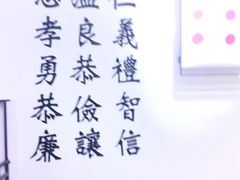 仁義禮智信
溫良恭儉讓
忠孝勇恭廉